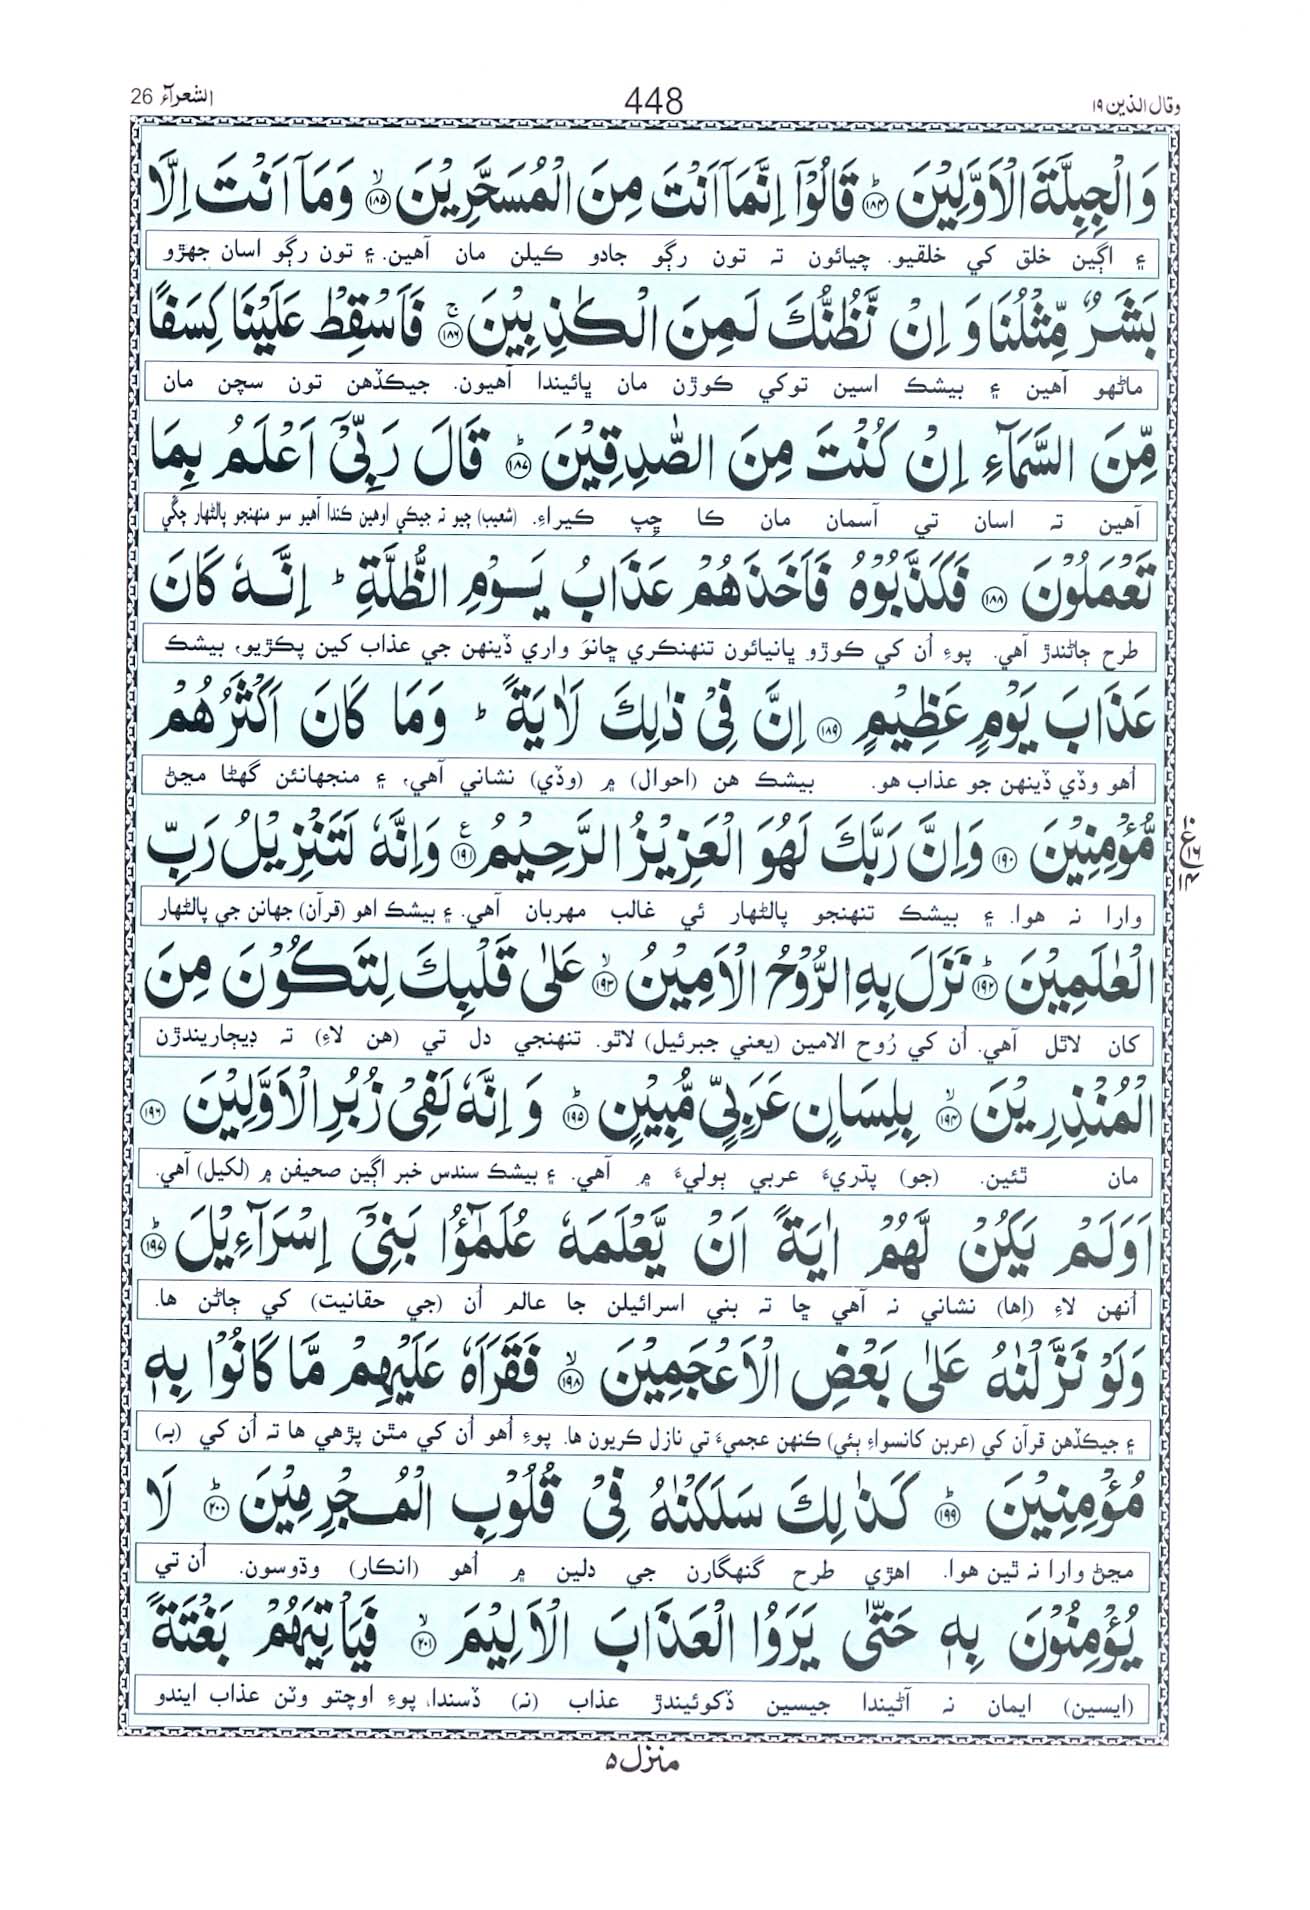 وقال الذين ١٩
448
الشعرآء 26
وَالْجِبِلَّةَ الْاَوَّلِيْنَ ؕ﴿۱۸۴﴾ قَالُوْۤا اِنَّمَاۤ اَنْتَ مِنَ الْمُسَحَّرِيْنَ ۙ﴿۱۸۵﴾ وَمَاۤ اَنْتَ اِلَّا
۽ اڳين خلق کي خلقيو. چيائون تہ تون رڳو جادو ڪيلن مان آهين. ۽ تون رڳو اسان جهڙو
بَشَرٌ مِّثْلُنَا وَ اِنْ نَّظُنُّكَ لَمِنَ الْكٰذِبِيْنَ ۚ﴿۱۸۶﴾ فَاَسْقِطْ عَلَيْنَا كِسَفًا
ماڻهو آهين ۽ بيشڪ اسين توکي ڪوڙن مان ڀائيندا آهيون. جيڪڏهن تون سچن مان
مِّنَ السَّمَآءِ اِنْ كُنْتَ مِنَ الصّٰدِقِيْنَ ؕ﴿۱۸۷﴾ قَالَ رَبِّيْۤ اَعْلَمُ بِمَا
آهين تہ اسان تي آسمان مان ڪا ڇِپ ڪيراءِ. (شعيب) چيو تہ جيڪي اوهين ڪندا آهيو سو منهنجو پالڻهار چڱي
تَعْمَلُوْنَ ﴿۱۸۸﴾ فَكَذَّبُوْهُ فَاَخَذَهُمْ عَذَابُ يَوْمِ الظُّلَّةِ ؕ اِنَّهٗ كَانَ
طرح ڄاڻندڙ آهي. پوءِ اُن کي ڪوڙو ڀانيائون تنهنڪري ڇانوَ واري ڏينهن جي عذاب کين پڪڙيو، بيشڪ
عَذَابَ يَوْمٍ عَظِيْمٍ ﴿۱۸۹﴾ اِنَّ فِيْ ذٰلِكَ لَاٰيَةً ؕ وَمَا كَانَ اَكْثَرُهُمْ
اُهو وڏي ڏينهن جو عذاب هو. بيشڪ هن (احوال) ۾ (وڏي) نشاني آهي، ۽ منجهانئن گهڻا مڃڻ
مُّؤْمِنِيْنَ ﴿۱۹۰﴾ وَاِنَّ رَبَّكَ لَهُوَ الْعَزِيْزُ الرَّحِيْمُ ﴿۱۹۱﴾ع وَاِنَّهٗ لَتَنْزِيْلُ رَبِّ
۱۰ ع ۱۶ ۱۴
وارا نہ هوا. ۽ بيشڪ تنهنجو پالڻهار ئي غالب مهربان آهي. ۽ بيشڪ اهو (قرآن) جهانن جي پالڻهار
الْعٰلَمِيْنَ ؕ﴿۱۹۲﴾ نَزَلَ بِهِ الرُّوْحُ الْاَمِيْنُ ۙ﴿۱۹۳﴾ عَلٰى قَلْبِكَ لِتَكُوْنَ مِنَ
کان لاٿل آهي. اُن کي رُوح الامين (يعني جبرئيل) لاٿو. تنهنجي دل تي (هن لاءِ) تہ ڊيڄاريندڙن
الْمُنْذِرِيْنَ ۙ﴿۱۹۴﴾ بِلِسَانٍ عَرَبِيٍّ مُّبِيْنٍ ؕ﴿۱۹۵﴾ وَ اِنَّهٗ لَفِيْ زُبُرِ الْاَوَّلِيْنَ ﴿۱۹۶﴾
مان ٿئين. (جو) پڌريءَ عربي ٻوليءَ ۾ آهي. ۽ بيشڪ سندس خبر اڳين صحيفن ۾ (لکيل) آهي.
اَوَلَمْ يَكُنْ لَّهُمْ اٰيَةً اَنْ يَّعْلَمَهٗ عُلَمٰٓؤُا بَنِيْۤ اِسْرَآءِيْلَ ؕ﴿۱۹۷﴾
اُنهن لاءِ (اِها) نشاني نہ آهي ڇا تہ بني اسرائيلن جا عالم اُن (جي حقانيت) کي ڄاڻن ها.
وَلَوْ نَزَّلْنٰهُ عَلٰى بَعْضِ الْاَعْجَمِيْنَ ۙ﴿۱۹۸﴾ فَقَرَاَهٗ عَلَيْهِمْ مَّا كَانُوْا بِهٖ
۽ جيڪڏهن قرآن کي (عربن کانسواءِ ٻئي) ڪنهن عجميءَ تي نازل ڪريون ها. پوءِ اُهو اُن کي مٿن پڙهي ها تہ اُن کي (بہ)
مُؤْمِنِيْنَ ؕ﴿۱۹۹﴾ كَذٰلِكَ سَلَكْنٰهُ فِيْ قُلُوْبِ الْمُجْرِمِيْنَ ؕ﴿۲۰۰﴾ لَا
مڃڻ وارا نہ ٿين هوا. اهڙي طرح گنهگارن جي دلين ۾ اُهو (انڪار) وڌوسون. اُن تي
يُؤْمِنُوْنَ بِهٖ حَتّٰى يَرَوُا الْعَذَابَ الْاَلِيْمَ ۙ﴿۲۰۱﴾ فَيَاْتِيَهُمْ بَغْتَةً
(ايسين) ايمان نہ آڻيندا جيسين ڏکوئيندڙ عذاب (نہ) ڏسندا، پوءِ اوچتو وٽن عذاب ايندو
منزل ۵